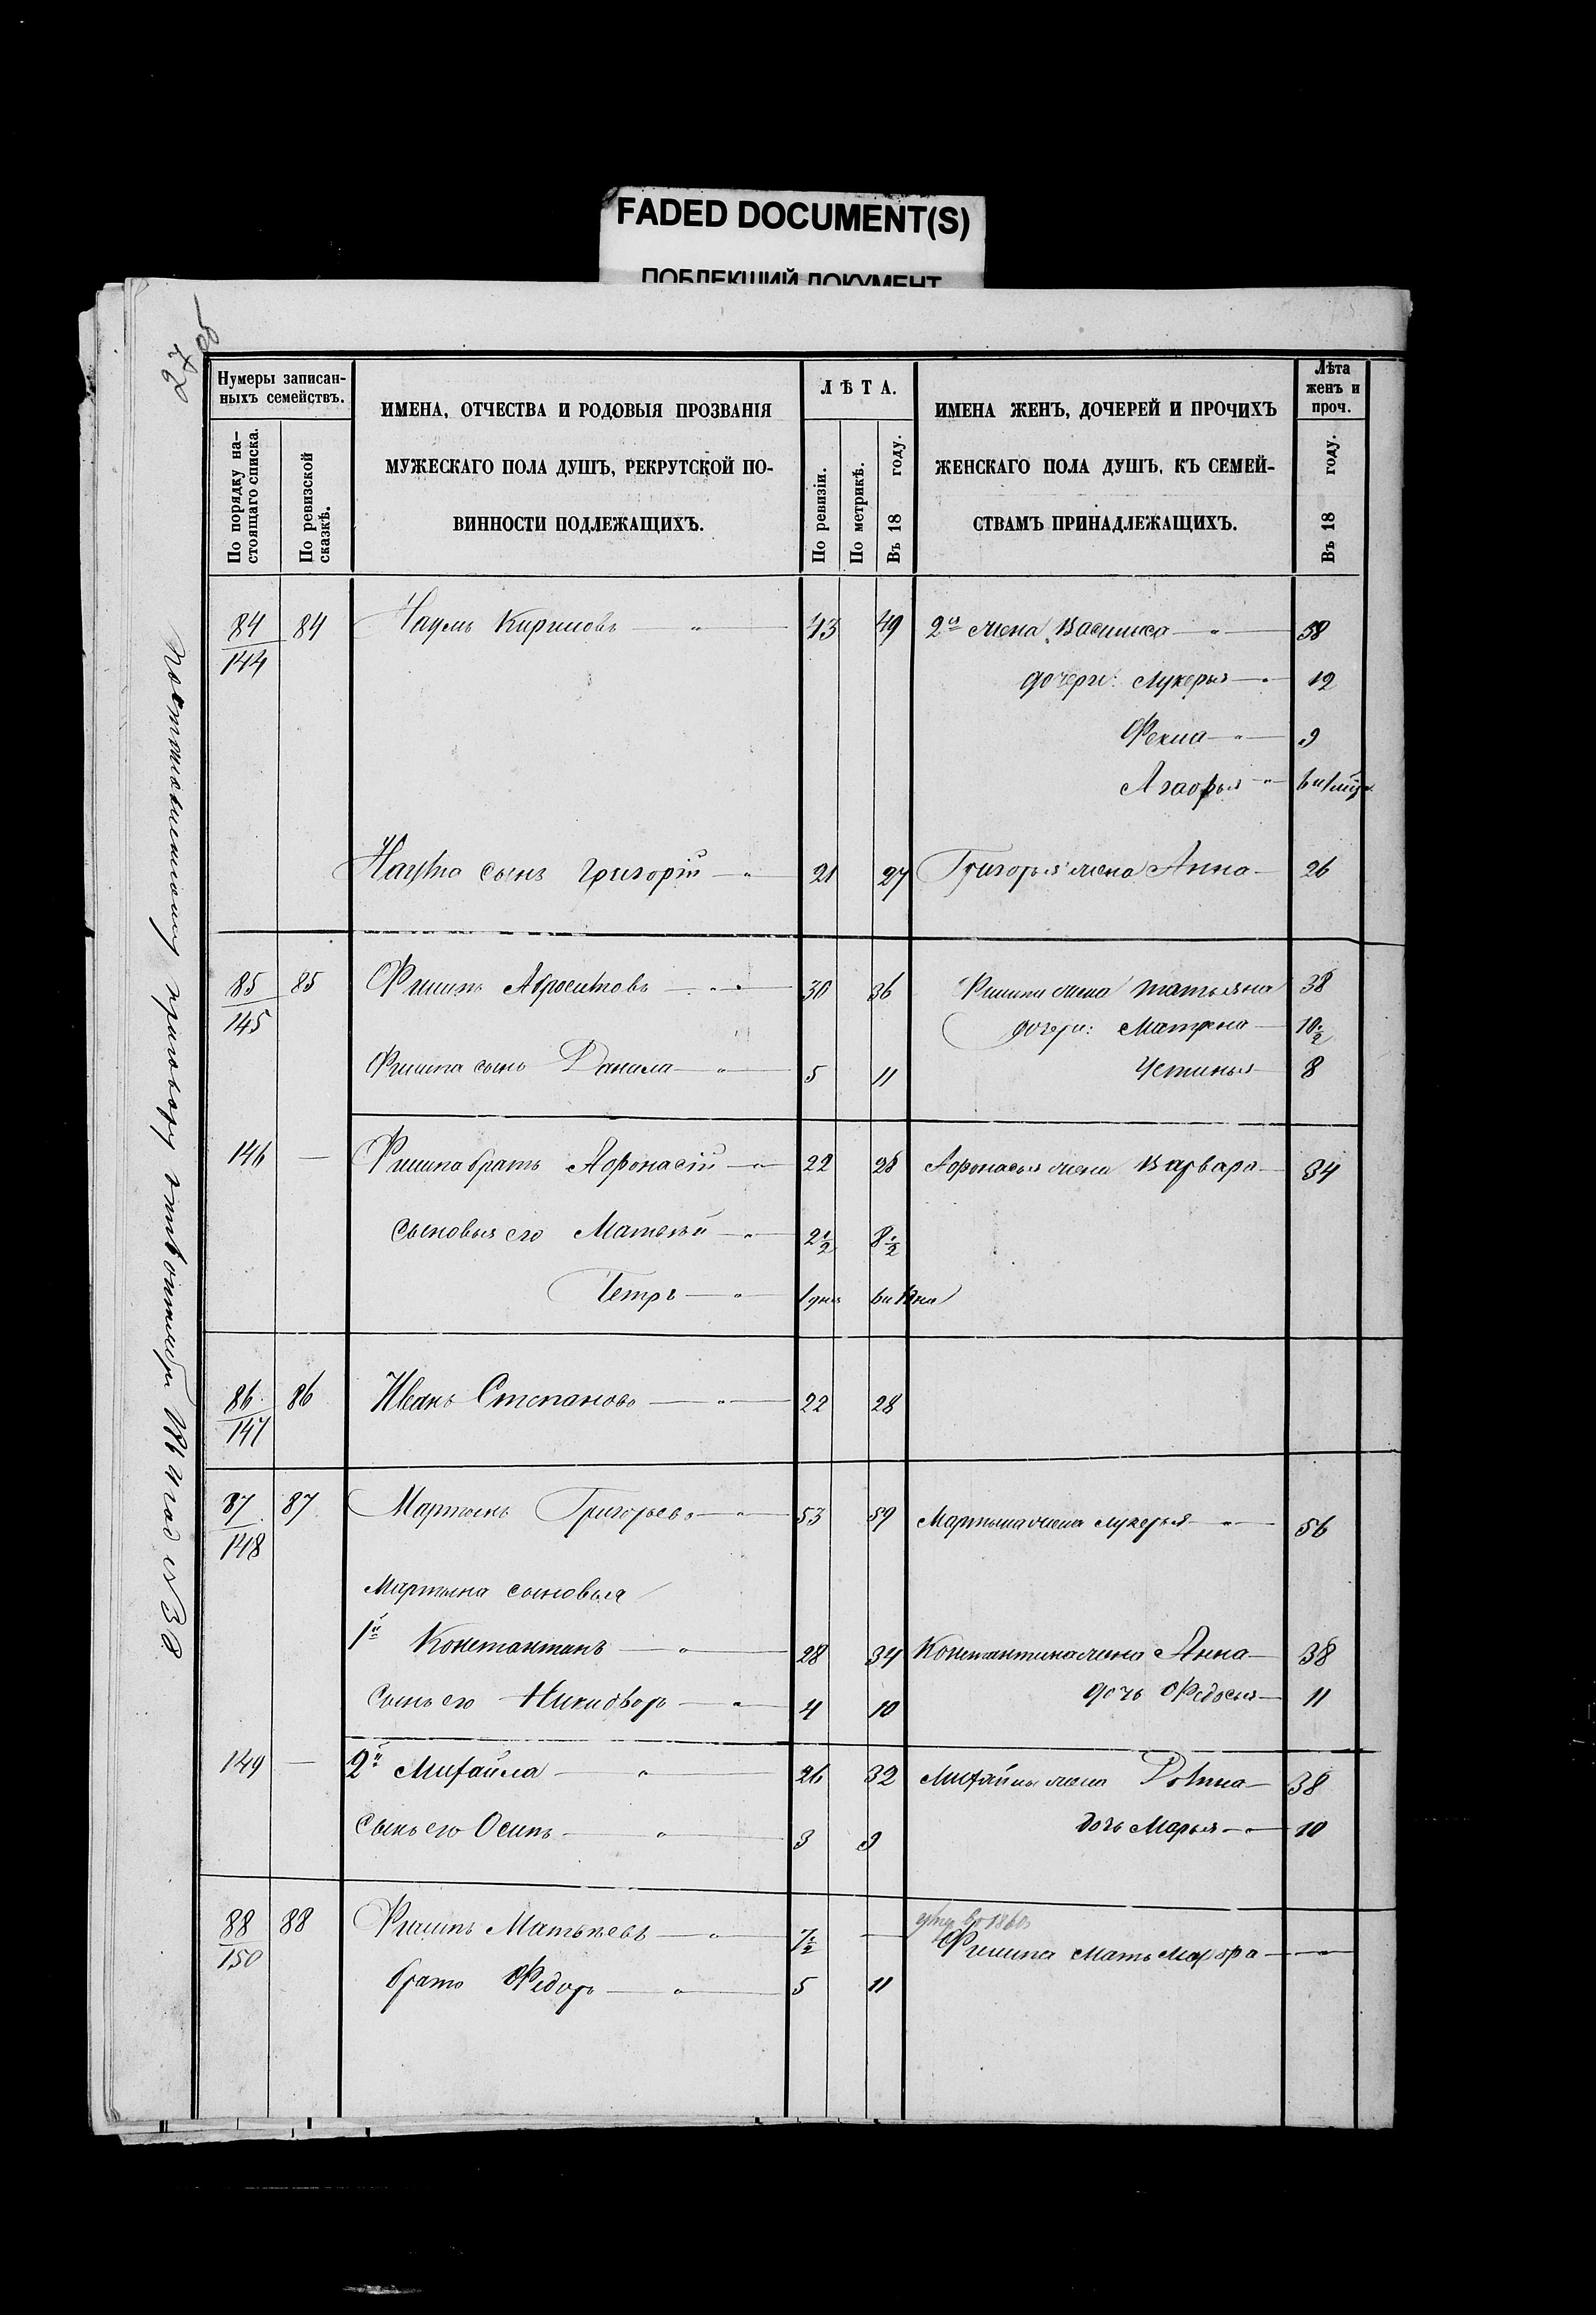 FADED DOCUMENT(S)
ПОБЛЕКШИЙ ДОКУМЕНТ
Нумеры записан-
ныхъ семействъ.
По порядку на-
стоящаго списка.
По ревизской
сказкѣ.
ИМЕНА, ОТЧЕСТВА И РОДОВЫЯ ПРОЗВАНІЯ
МУЖЕСКАГО ПОЛА ДУШЪ, РЕКРУТСКОЙ ПО-
ВИННОСТИ ПОДЛЕЖАЩИХЪ.
ЛѢТА.
По ревизіи.
По метрикѣ.
Въ 18 году.
ИМЕНА ЖЕНЪ, ДОЧЕРЕЙ И ПРОЧИХЪ
ЖЕНСКАГО ПОЛА ДУШЪ, КЪ СЕМЕЙ-
СТВАМЪ ПРИНАДЛЕЖАЩИХЪ.
Лѣта
женъ и
проч.
Въ 18 году.
84 84 Наумъ Кириловъ — " — 43 49 2я жена Василиса — " — 58
144
дочери: Лукерья — " 12
Фекла — " — 9
Агафья — "
Наума сынъ Григорій — " 21 27 Григорья жена Анна — 26
85 85 Филипъ Абросимовъ — " — 30 36 Филипа жена Татьяна 38
145 дочери: Матрена — 10½
Филипа сынъ Данила — " — 5 11 Устинья 8
146 — Филипа братъ Афонасій — " 22 28 Афонасья жена Варвара — 34
сыновья его Матвѣй — " 2½ 8½
Петръ — " 1 дня
86 86 Иванъ Степановъ — " — 22 28
147
87 87 Мартынъ Григорьевъ — " — 53 59 Мартына жена Лукерья — " — 56
148
Мартына сыновья
1й Константинъ — " — 28 34 Константина жена Анна — 38
Сынъ его Никифоръ — " 4 10 дочь Федосья — 11
149 — 2й Михайла — " — 26 32 Михайлы жена Домна — 38
Сынъ его Осипъ — " — 3 9 дочь Марья — " — 10
88 88 Филипъ Матвѣевъ — " — 7½ — въ 1860
150 Филипа мать — " —
братъ Федоръ — " — 5 11